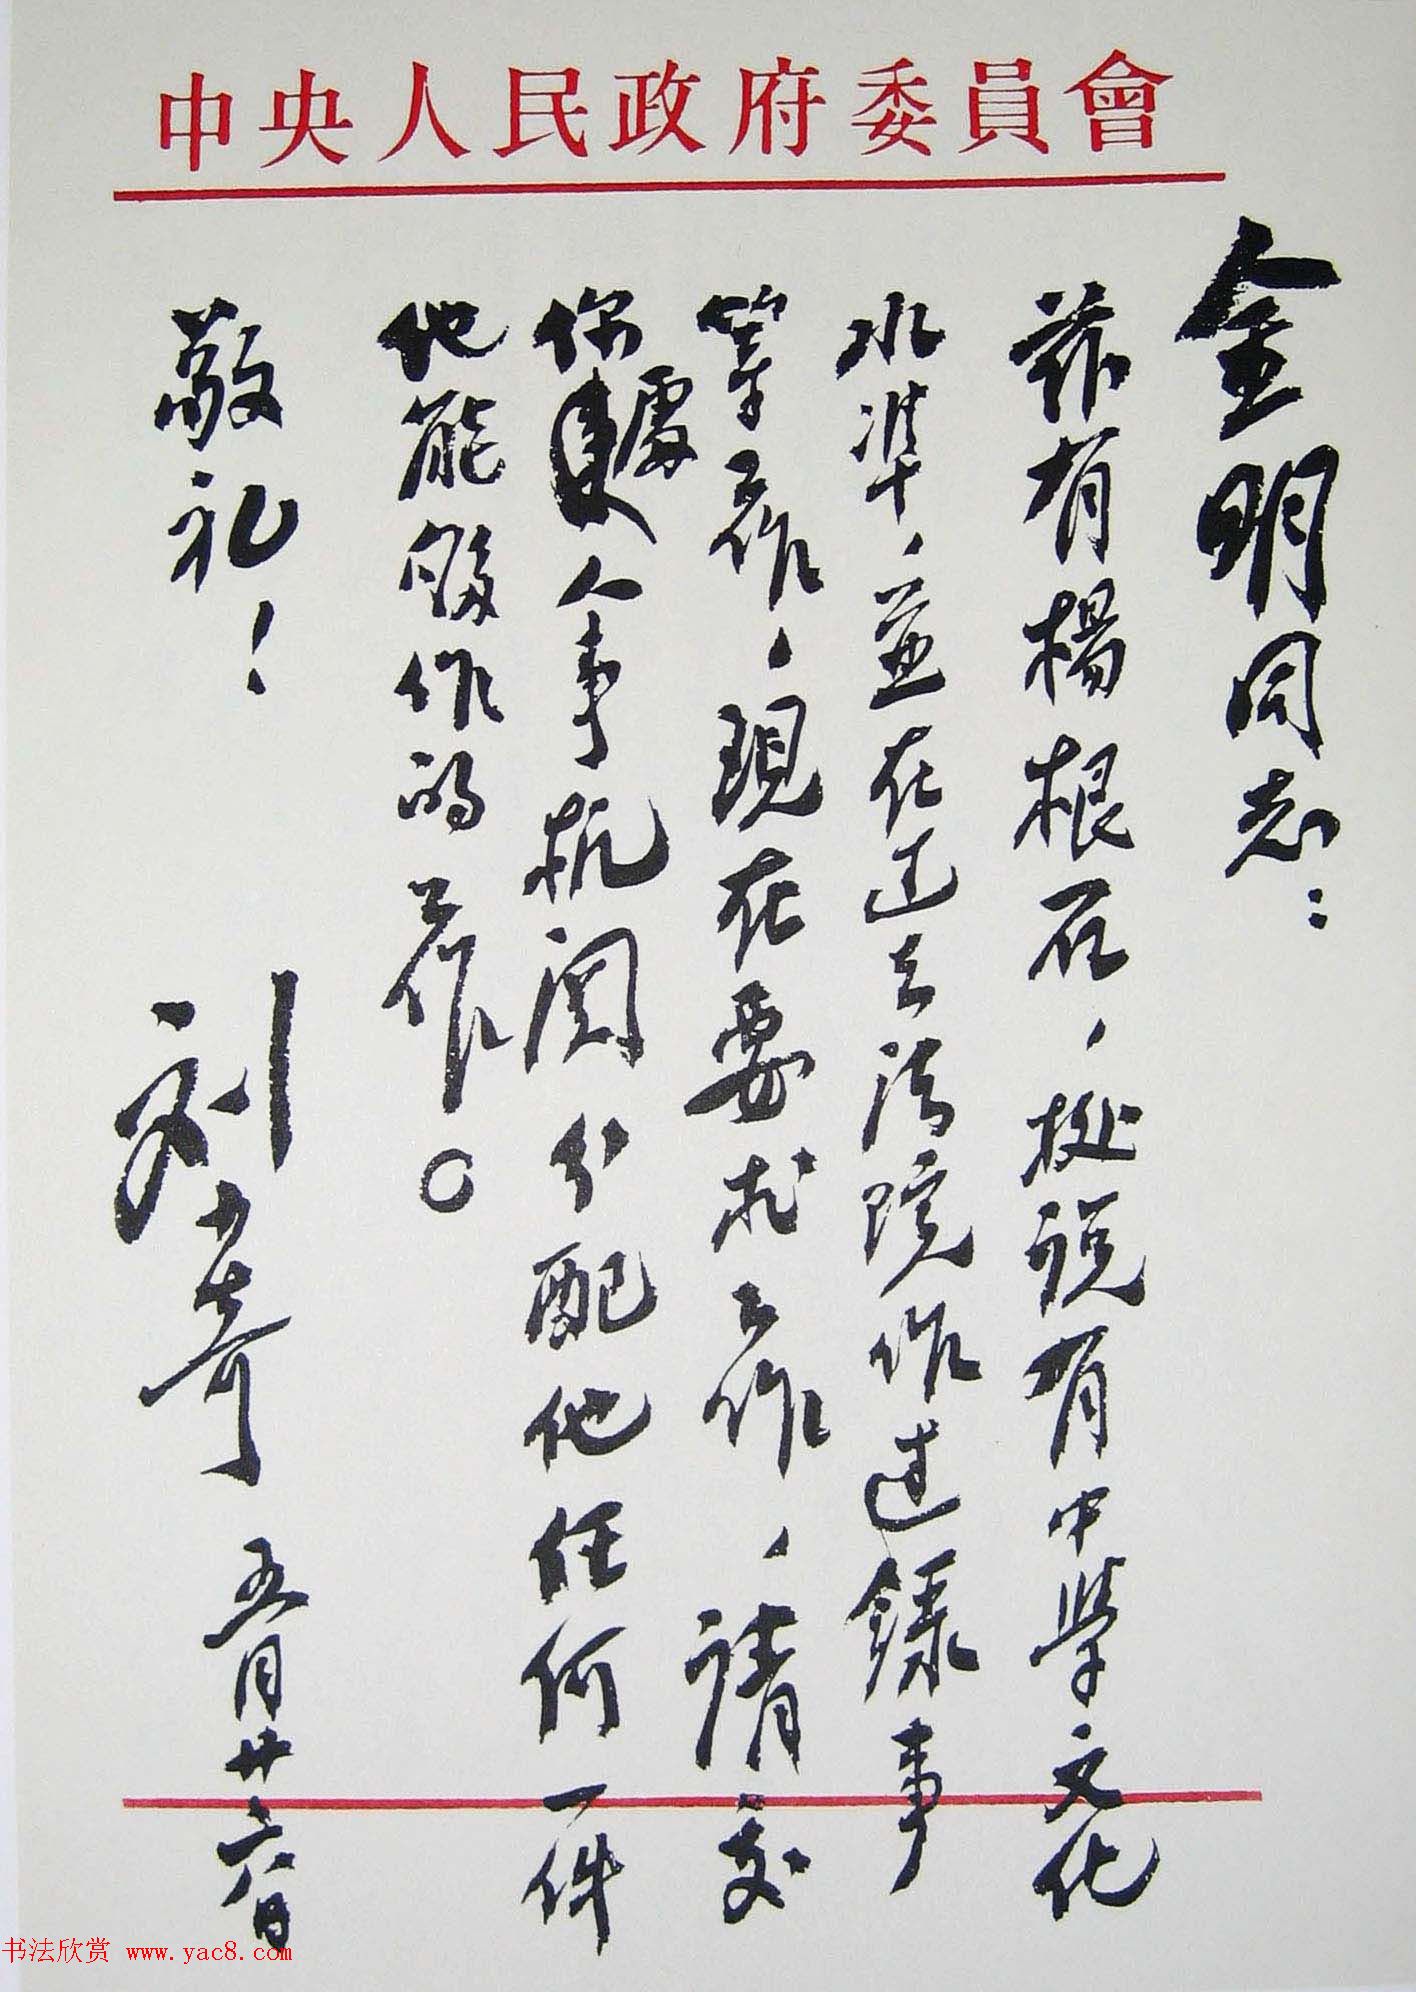 中央人民政府委員會
金明同志：
茲有楊根石，據說有中學文化
水準，並在过去法院作过録事
等工作，現在要求工作，請交
你處人事机関分配他任何一件
他能够作的工作。
敬礼！
刘少奇 五月廿六日
书法欣赏 www.yac8.com